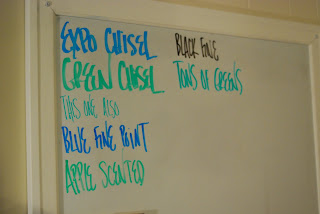 EXPO CHISEL
GREEN CHISEL
THIS ONE ALSO
BLUE FINE POINT
APPLE SCENTED
BLACK FINE
TONS OF GREENS